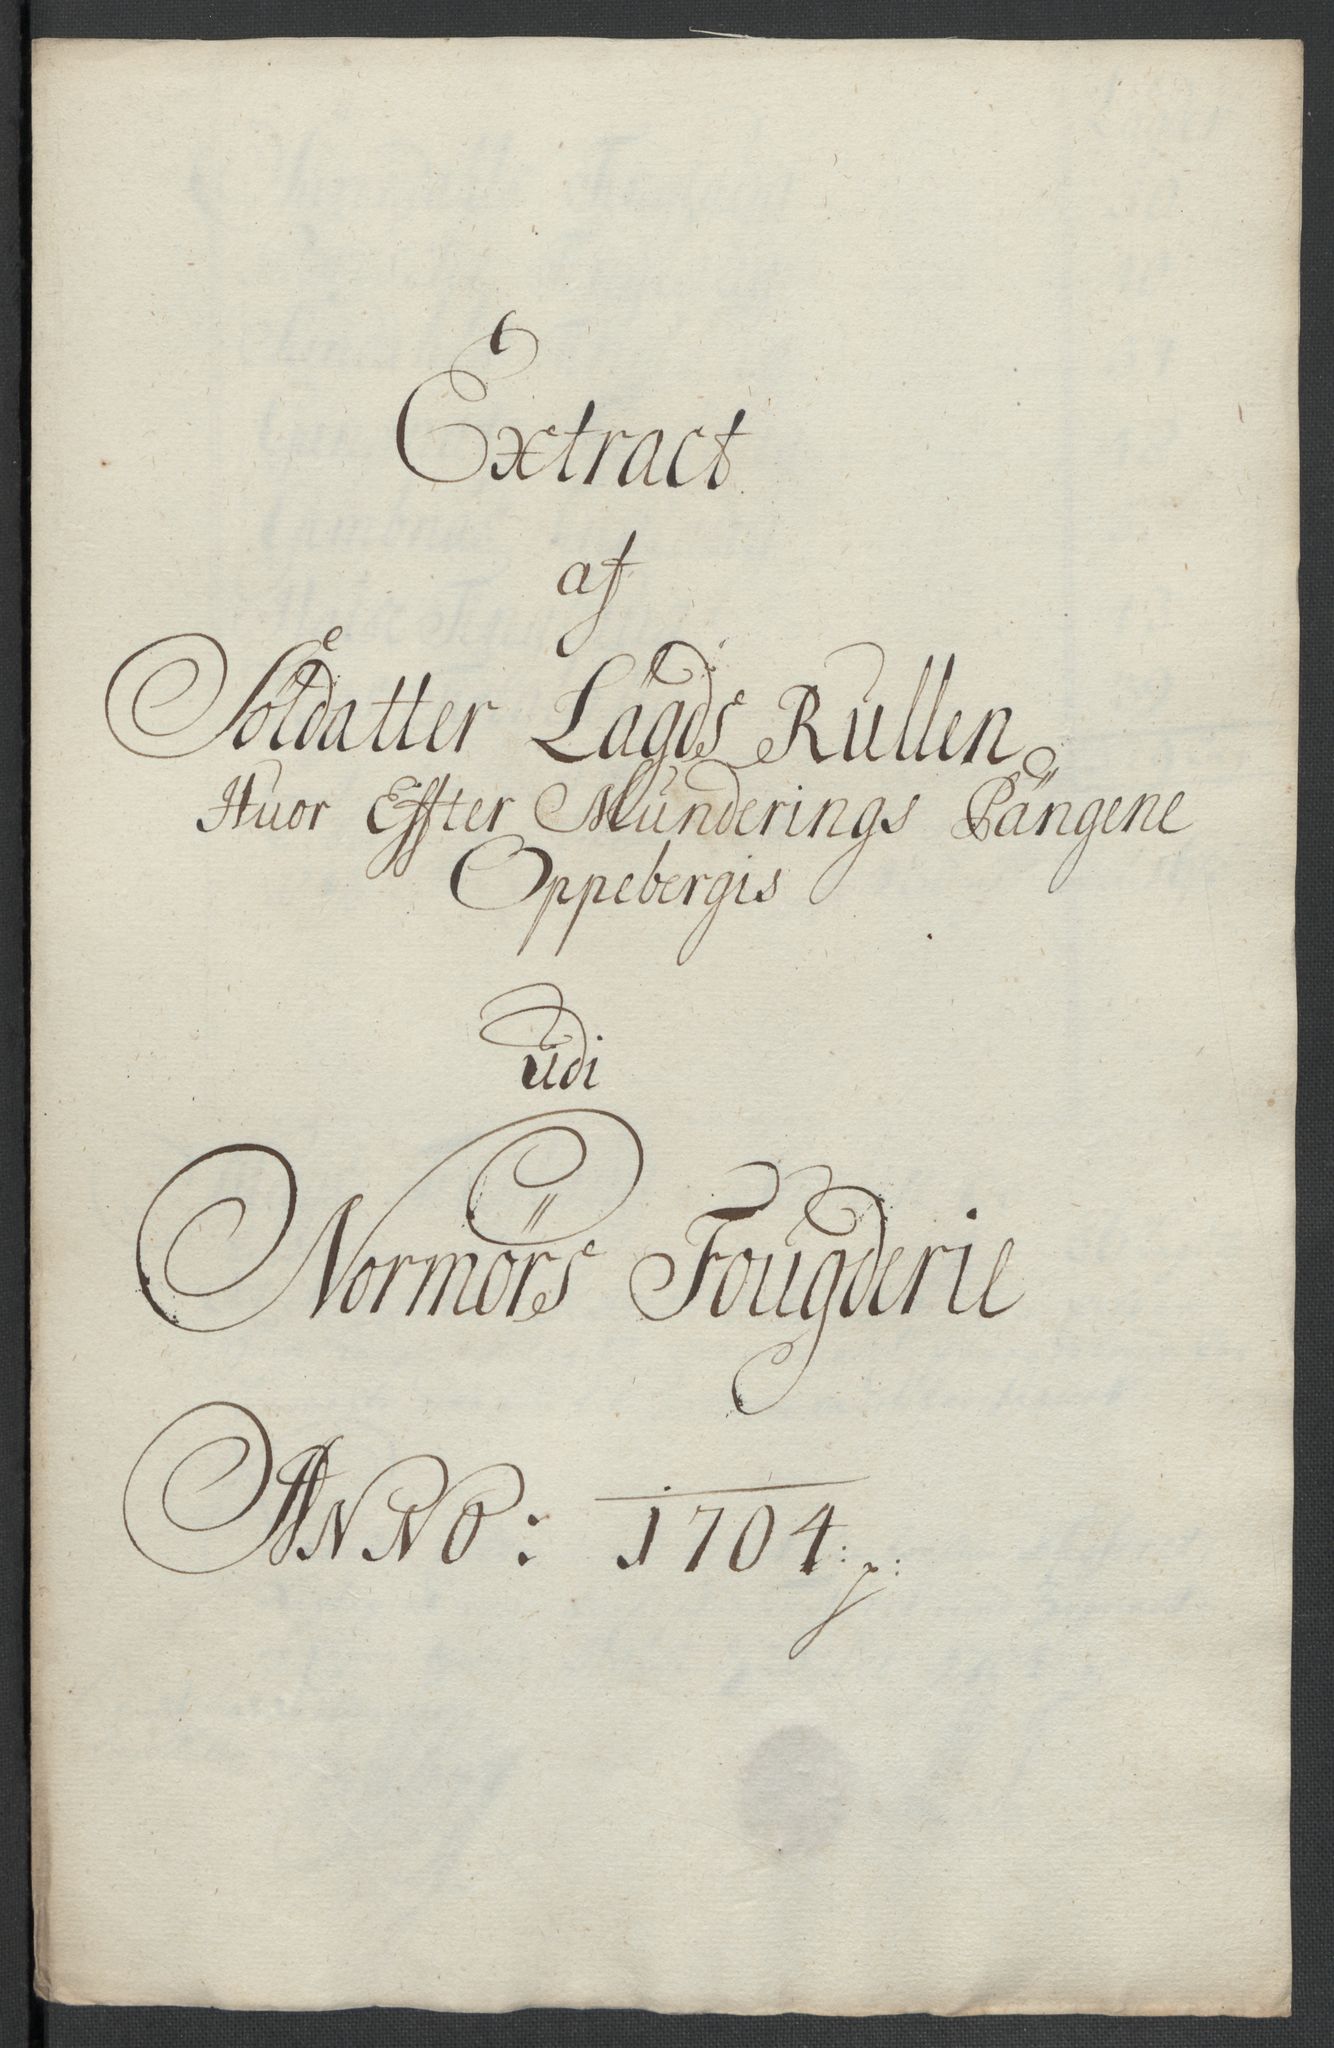 Extract
af
Soldatter Lägds Rullen
Huor Effter Munderings Pängene
Oppebergis
udi
Normörs Fougderie
ANNO: 1704: